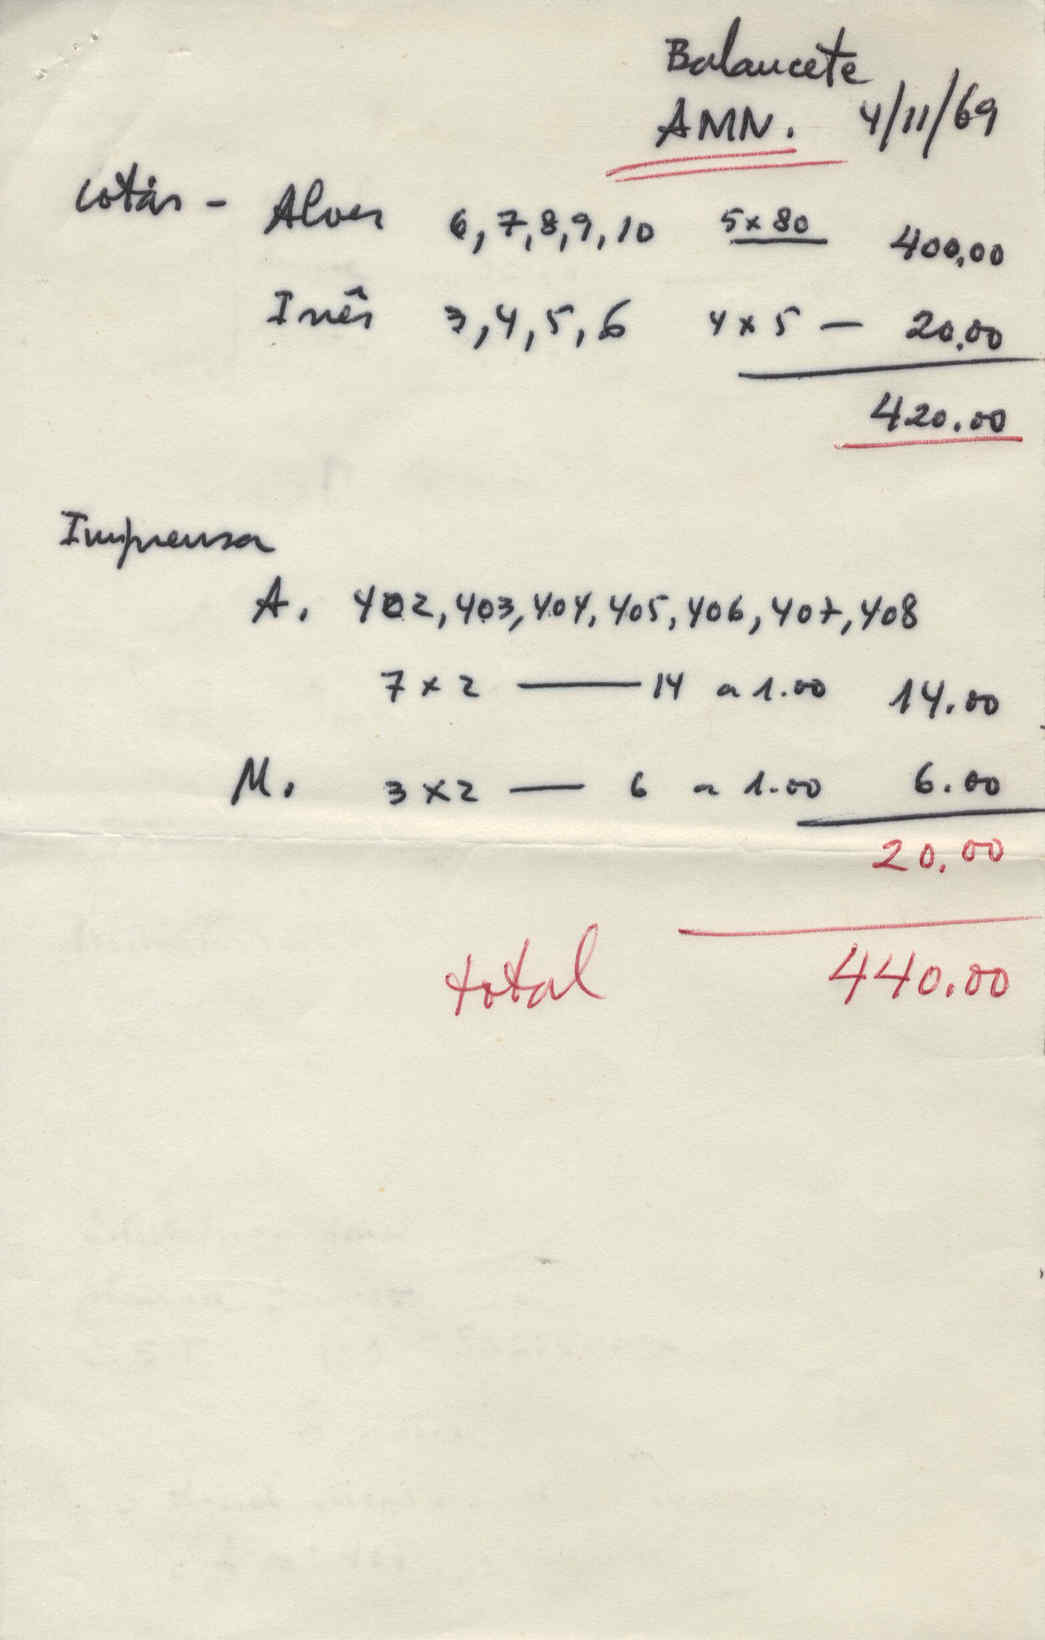 Balancete
AMN. 4/11/69
Cotas - Alves 6,7,8,9,10 5x80 400,00
Inês 3,4,5,6 4x5 — 20,00
420.00
Imprensa
A. 402,403,404,405,406,407,408
7x2 — 14 a 1.00 14.00
M. 3x2 — 6 a 1.00 6.00
20.00
total 440.00